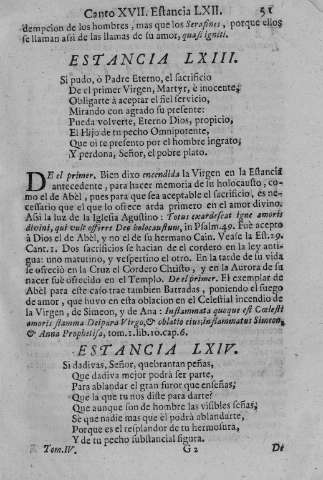 Canto XVII. Estancia LXII. 51
dempcion de los hombres, mas que los Serafines, porque ellos
se llaman assi de las llamas de su amor, quasi igniti.
ESTANCIA LXIII.
Si pudo, ò Padre Eterno, el sacrificio
De el primer Virgen, Martyr, è inocente,
Obligarte à aceptar el fiel servicio,
Mirando con agrado su presente:
Pueda volverte, Eterno Dios, propicio,
El Hijo de tu pecho Omnipotente,
Que oi te presento por el hombre ingrato;
Y perdona, Señor, el pobre plato.
DE el primer. Bien dixo encendida la Virgen en la Estancia
antecedente, para hacer memoria de su holocausto, co-
mo el de Abèl, pues para que sea aceptable el sacrificio, es ne-
cessario que el que lo ofrece arda primero en el amor divino.
Assi la luz de la Iglesia Agustino: Totus exardescat igne amoris
divini, qui vult offerre Deo holocaustum, in Psalm. 49. Fuè acepto
à Dios el de Abèl, y no el de su hermano Cain. Vease la Est. 29.
Cant. 1. Dos sacrificios se hacian de el cordero en la ley anti-
gua: uno matutino, y vespertino el otro. En la tarde de su vida
se ofreciò en la Cruz el Cordero Christo, y en la Aurora de su
nacer fuè ofrecido en el Templo. De el primer. El exemplar de
Abèl para este caso trae tambien Barradas, poniendo el fuego
de amor, que huvo en esta oblacion en el Celestial incendio de
la Virgen, de Simeon, y de Ana: Inflammata quoque est Cœlesti
amoris flamma Deipara Virgo, & oblatio eius; inflammatus Simeon,
& Anna Prophetissa, tom. 1. lib. 10. cap. 6.
ESTANCIA LXIV.
Si dadivas, Señor, quebrantan peñas,
Que dadiva mejor podrà ser parte,
Para ablandar el gran furor que enseñas;
Que la que tu nos diste para darte?
Que aunque son de hombre las visibles señas,
Se que nadie mas que èl podrà ablandarte,
Porque es el resplandor de tu hermosura,
Y de tu pecho substancial figura.
Tom. IV. G 2 De